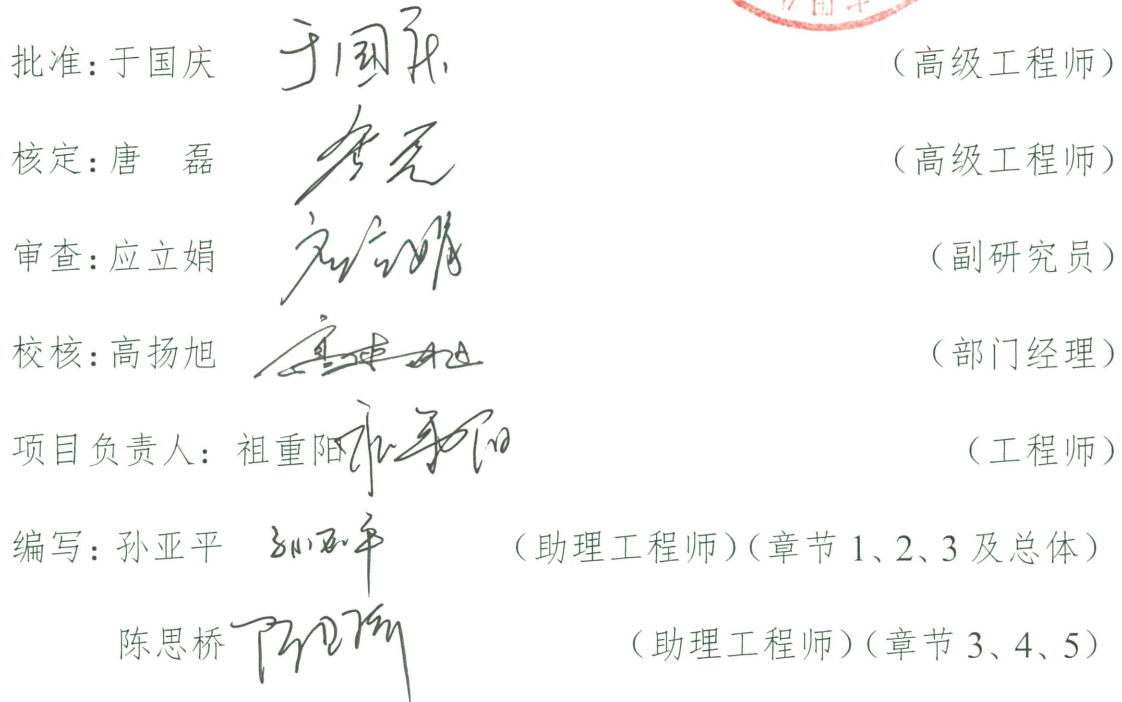 批准：于国庆 于国庆 （高级工程师）
核定：唐　磊 （高级工程师）
审查：应立娟 应立娟 （副研究员）
校核：高扬旭 （部门经理）
项目负责人：祖重阳 祖重阳 （工程师）
编写：孙亚平 孙亚平 （助理工程师）（章节 1、2、3 及总体）
陈思桥 陈思桥 （助理工程师）（章节 3、4、5）